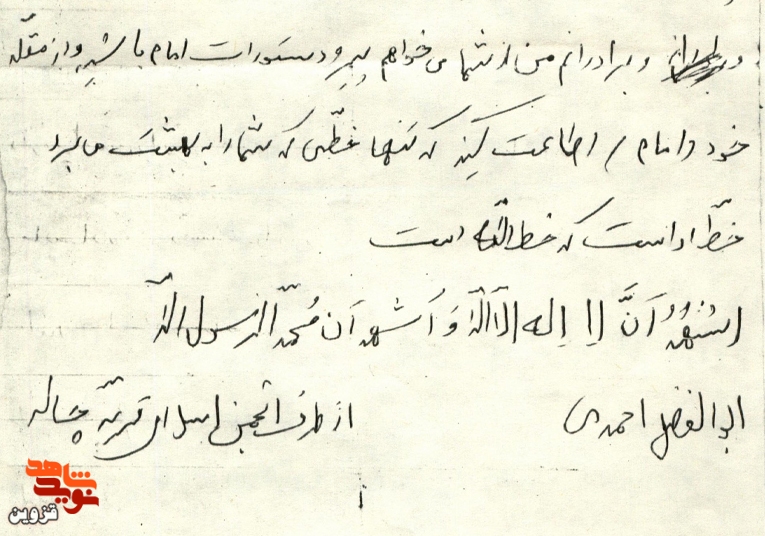 و برادرانم من از شما می خواهم پیرو دستورات امام باشید و از مقلد
خود و امام را اطاعت کنید که تنها خطّی که شما را به بهشت می برد
خطّ او است که خط الله است
اشهدُ اَنَّ لا اِله اِلاّ الله وَ اَشهد اَن مُحمّد الرسول الله
ابوالفضل احمدی
از طرف انجمن اسلامی قریه چناله
نوید شاهد
قزوین